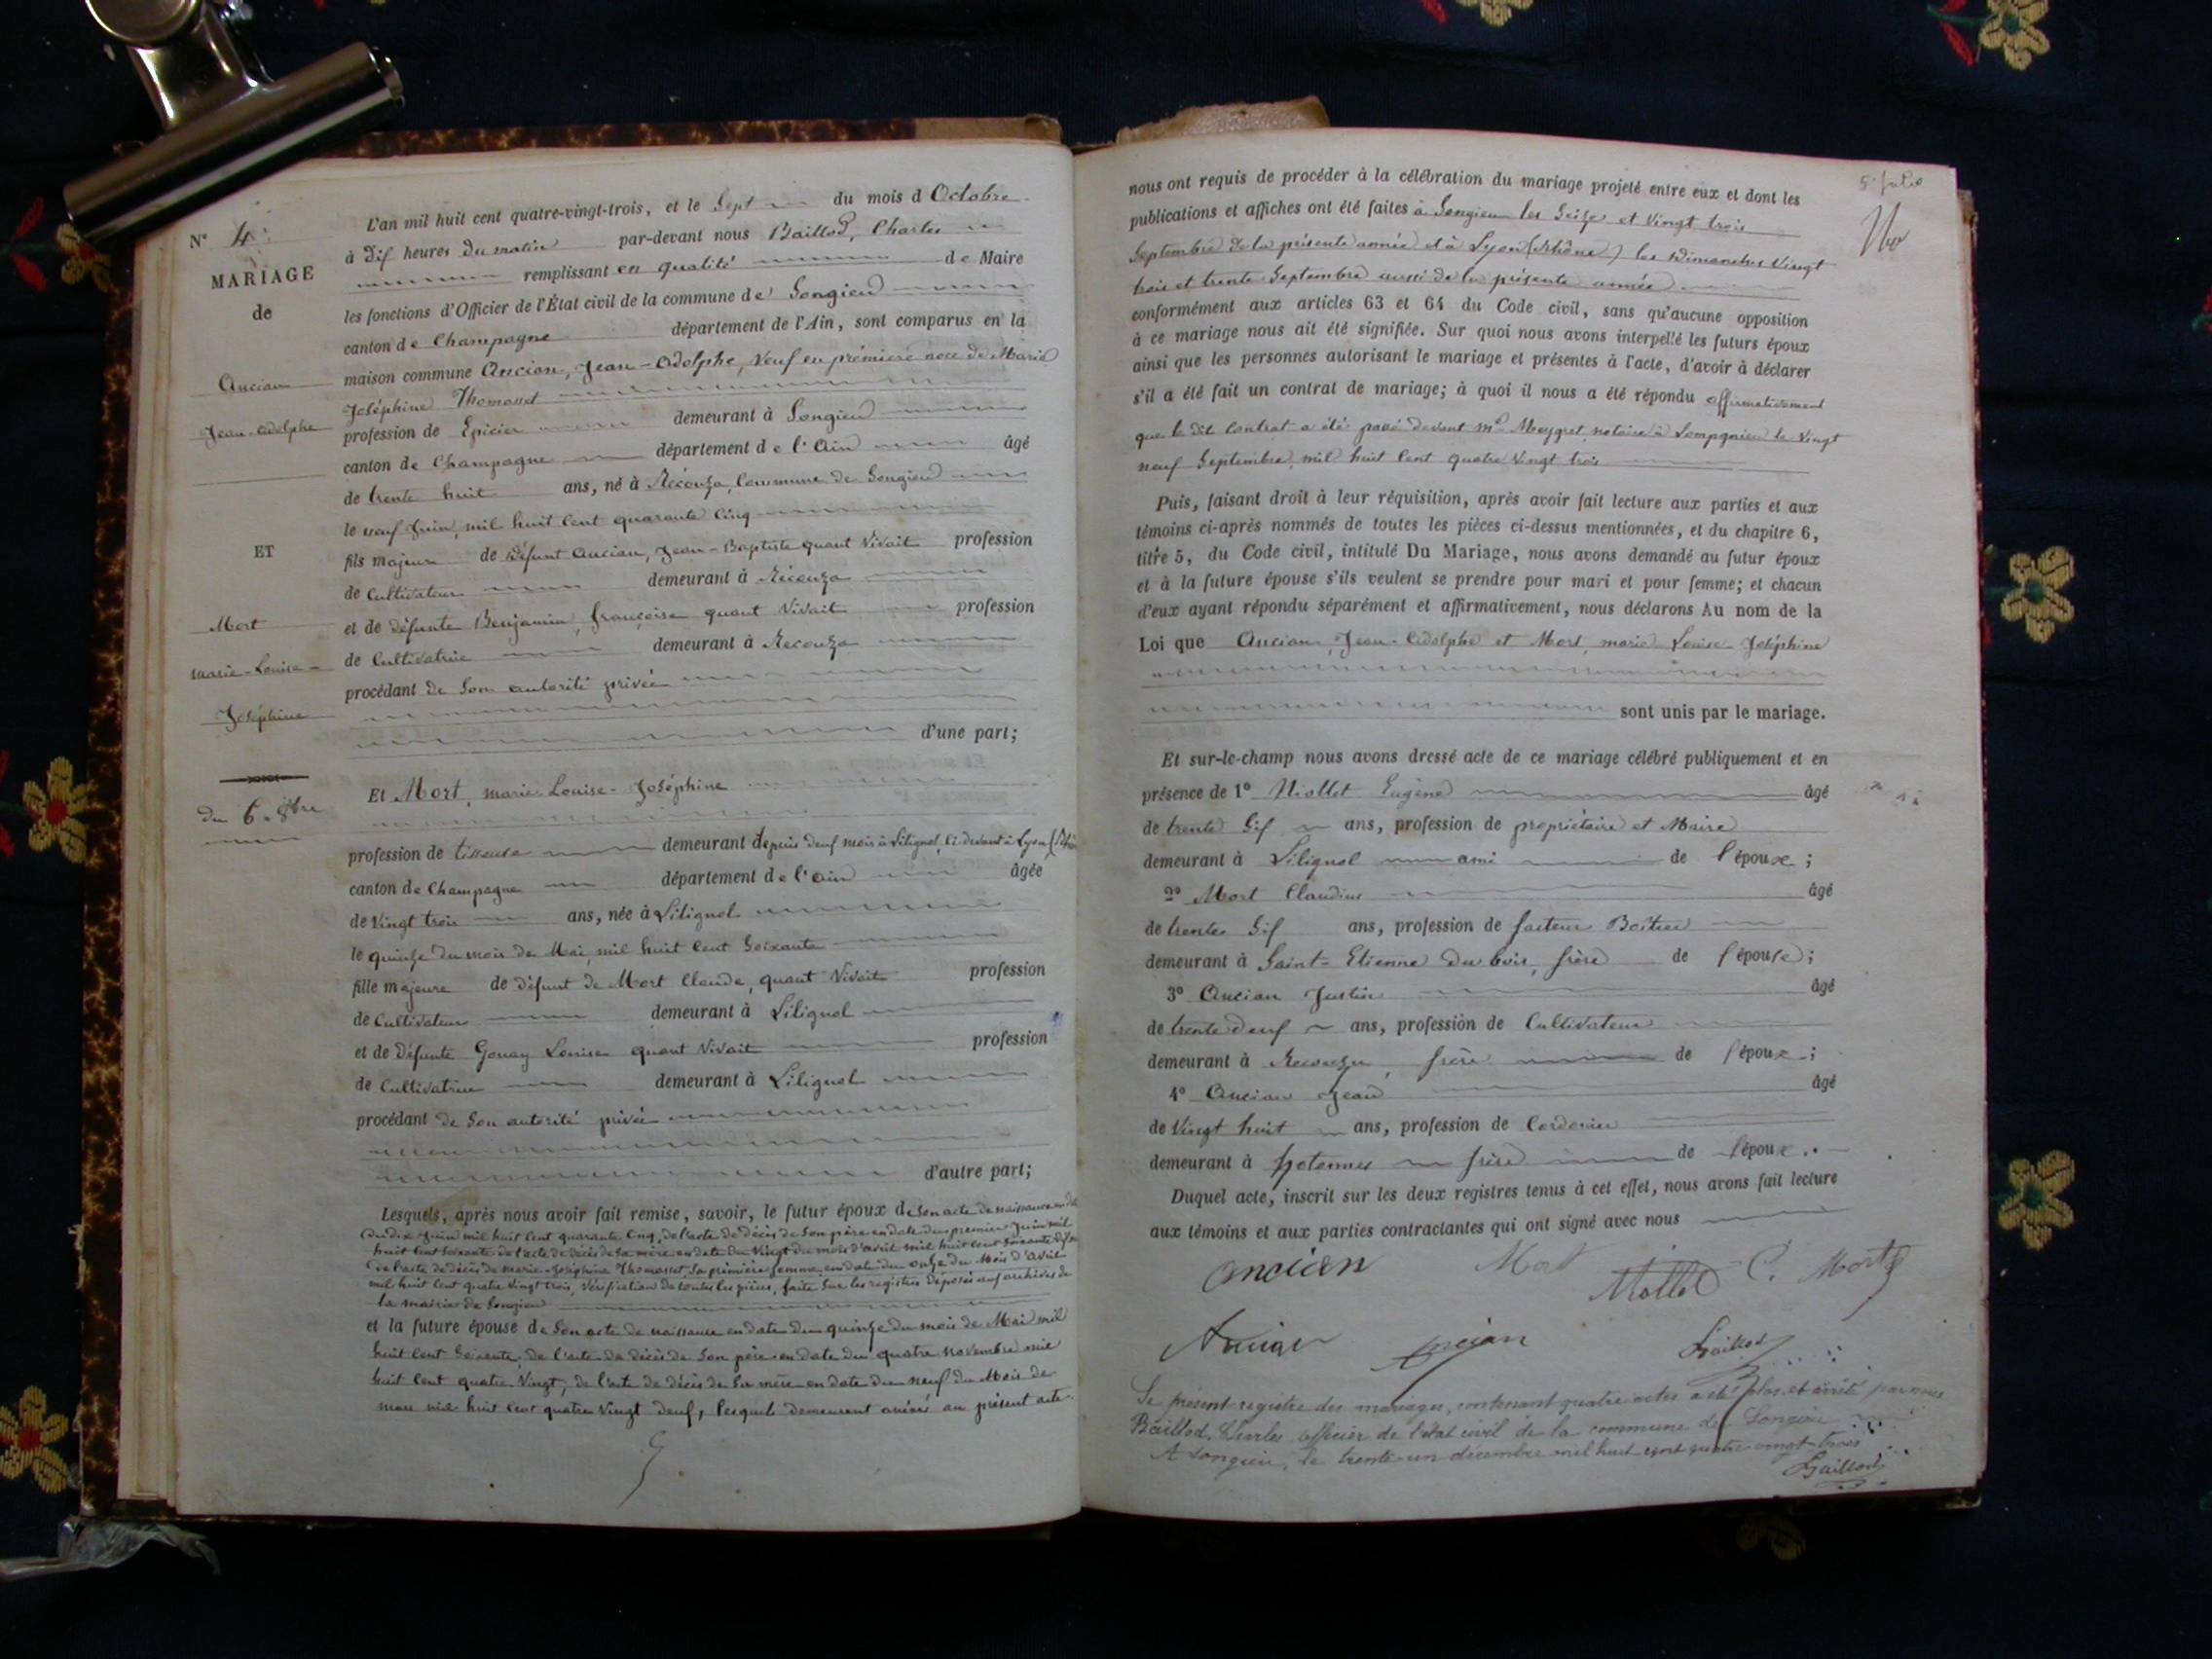 N° 4
MARIAGE
de
Ancian
Jean-Adolphe
ET
Mort
marie-Louise-
Joséphine
du 6. 8bre
L'an mil huit cent quatre-vingt-trois, et le Sept du mois d Octobre
à Dix heures du matin par-devant nous Baillod, Charles
remplissant en qualité de Maire
les fonctions d'Officier de l'État civil de la commune de Songieu
canton de Champagne département de l'Ain, sont comparus en la
maison commune Ancian, Jean-Adolphe, Veuf en première noce de Marie
Joséphine Thomasset
profession de Epicier demeurant à Songieu
canton de Champagne département de l'Ain âgé
de trente huit ans, né à Récouza, Commune de Songieu
le neuf Juin, mil huit cent quarante cinq
fils majeur de défunt Ancian, Jean-Baptiste quant Vivait profession
de Cultivateur demeurant à Récouza
et de défunte Benjamin, françoise quant Vivait profession
de Cultivatrice demeurant à Recouza
procédant de Son autorité privée
d'une part;
Et Mort, marie-Louise-Joséphine
profession de tisseuse demeurant depuis deux mois à Lilignol, Ci devant à Lyon
canton de Champagne département de l'ain âgée
de Vingt trois ans, née à Lilignol
le quinze du mois de Mai, mil huit cent Soixante
fille majeure de défunt de Mort Claude, quant Vivait profession
de Cultivateur demeurant à Lilignol
et de défunte Gonay Louise quant Vivait profession
de Cultivatrice demeurant à Lilignol
procédant de Son autorité privée
d'autre part;
Lesquels, après nous avoir fait remise, savoir, le futur époux de Son acte de naissance en date
du dix Juin mil huit cent quarante Cinq, de l'acte de décès de Son père en date du premier Juin mil
huit cent Soixante de l'acte de décès de Sa mère en date du Vingt du mois d'avril mil huit cent Soixante
de l'acte de décès de Marie-Joséphine Thomasset, Sa première femme, en date du onze du Mois d'avril
mil huit cent quatre Vingt trois, Vérification de toutes les pièces, faite Sur les registres déposés aux archives de
la mairie de Songieu
et la future épouse de Son acte de naissance en date du quinze du mois de Mai mil
huit cent Soixante, de l'acte de décès de Son père en date du quatre novembre mil
huit cent quatre Vingt, de l'acte de décès de Sa mère en date du neuf du Mois de
mars mil huit cent quatre Vingt deux, lesquels demeurent anéxé au présent acte.
5e folio
nous ont requis de procéder à la célébration du mariage projeté entre eux et dont les
publications et affiches ont été faites à Songieu les Seize et Vingt trois
Septembre de la présente année et à Lyon (Rhône) les Dimanches Vingt
trois et trente Septembre aussi de la présente année
conformément aux articles 63 et 64 du Code civil, sans qu'aucune opposition
à ce mariage nous ait été signifiée. Sur quoi nous avons interpellé les futurs époux
ainsi que les personnes autorisant le mariage et présentes à l'acte, d'avoir à déclarer
s'il a été fait un contrat de mariage; à quoi il nous a été répondu affirmativement
que le dit Contrat a été passé devant me Meygret, notaire à Lompgnieu le Vingt
neuf Septembre, mil huit Cent quatre Vingt trois
Puis, faisant droit à leur réquisition, après avoir fait lecture aux parties et aux
témoins ci-après nommés de toutes les pièces ci-dessus mentionnées, et du chapitre 6,
titre 5, du Code civil, intitulé Du Mariage, nous avons demandé au futur époux
et à la future épouse s'ils veulent se prendre pour mari et pour femme; et chacun
d'eux ayant répondu séparément et affirmativement, nous déclarons Au nom de la
Loi que Ancian, Jean-Adolphe et Mort, marie Louise-Joséphine
sont unis par le mariage.
Et sur-le-champ nous avons dressé acte de ce mariage célébré publiquement et en
présence de 1° Miollet Eugène âgé
de trente Six ans, profession de propriétaire et Maire
demeurant à Lilignol ami de l'épouse;
2° Mort Claudius âgé
de trente Six ans, profession de facteur Boîtier
demeurant à Saint-Etienne du bois, frère de l'épouse;
3° Ancian Justin âgé
de trente deux ans, profession de Cultivateur
demeurant à Recouza, frère de l'époux;
4° Ancian Jean âgé
de Vingt huit ans, profession de Cordonier
demeurant à hotonnes frère de l'époux.
Duquel acte, inscrit sur les deux registres tenus à cet effet, nous avons fait lecture
aux témoins et aux parties contractantes qui ont signé avec nous
Ancien Mort Miollet C. Mort
Ancian Ancian Baillod
Le présent registre des mariages, contenant quatre actes a été clos et arrêté par nous
Baillod, Charles officier de l'état civil de la commune de Songieu
A Songieu, le trente-un décembre mil huit cent quatre-vingt-trois
Baillod